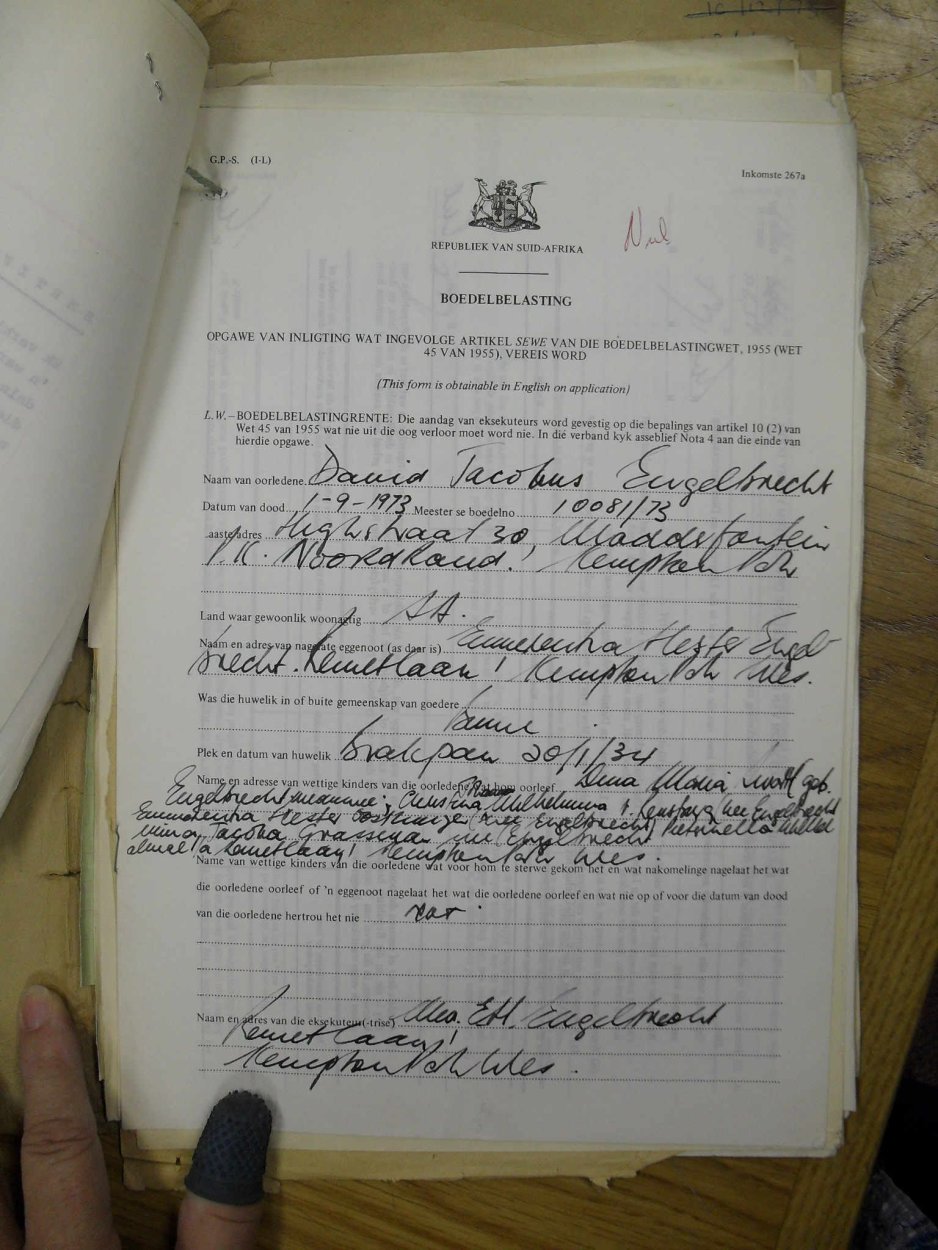 G.P.-S. (I-L)
Inkomste 267a
Nul
REPUBLIEK VAN SUID-AFRIKA
BOEDELBELASTING
OPGAWE VAN INLIGTING WAT INGEVOLGE ARTIKEL SEWE VAN DIE BOEDELBELASTINGWET, 1955 (WET
45 VAN 1955), VEREIS WORD
(This form is obtainable in English on application)
L.W.–BOEDELBELASTINGRENTE: Die aandag van eksekuteurs word gevestig op die bepalings van artikel 10 (2) van
Wet 45 van 1955 wat nie uit die oog verloor moet word nie. In dié verband kyk asseblief Nota 4 aan die einde van
hierdie opgawe.
Naam van oorledene David Jacobus Engelbrecht
Datum van dood 1-9-1973 Meester se boedelno 10081/73
aaste adres Highstraat 30, Modderfontein
P.K. Noordrand. Kempton Park
Land waar gewoonlik woonagtig S.A.
Naam en adres van nagelate eggenoot (as daar is) Emmerentia Hester Engel-
brecht. Kempton Park Wes.
Was die huwelik in of buite gemeenskap van goedere
binne
Plek en datum van huwelik Brakpan 20/1/34
Name en adresse van wettige kinders van die oorledene wat hom oorleef Dina Maria geb.
Engelbrecht Christina Wilhelmina Rensburg nee Engelbrecht
Emmerentia Hester nee Engelbrecht, Petronella
Jacoba nee Engelbrecht
Kempton Park Wes.
Name van wettige kinders van die oorledene wat voor hom te sterwe gekom het en wat nakomelinge nagelaat het wat
die oorledene oorleef of 'n eggenoot nagelaat het wat die oorledene oorleef en wat nie op of voor die datum van dood
van die oorledene hertrou het nie
Naam en adres van die eksekuteur(-trise) Mev. E.H. Engelbrecht
Kempton Park Wes.